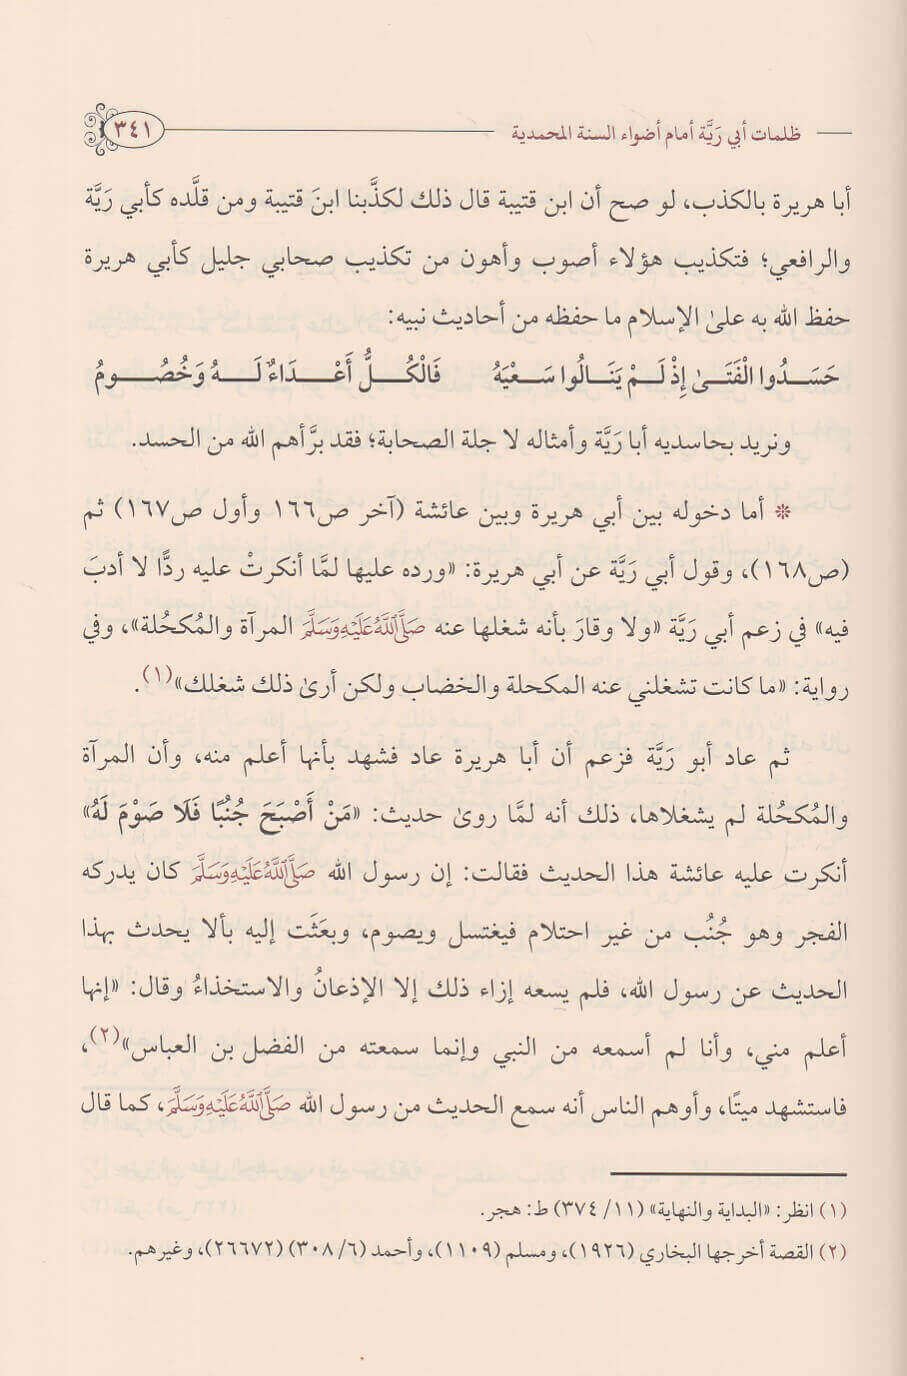 ظلمات أبي رَيَّة أمام أضواء السنة المحمدية ٣٤١
أبا هريرة بالكذب، لو صح أن ابن قتيبة قال ذلك لكذَّبنا ابنَ قتيبة ومن قلَّده كأبي رَيَّة
والرافعي؛ فتكذيب هؤلاء أصوب وأهون من تكذيب صحابي جليل كأبي هريرة
حفظ الله به علىٰ الإسلام ما حفظه من أحاديث نبيه:
حَسَدُوا الْفَتَىٰ إِذْ لَمْ يَنَالُوا سَعْيَهُ فَالْكُلُّ أَعْدَاءٌ لَهُ وَخُصُومُ
ونريد بحاسديه أبا رَيَّة وأمثاله لا جلة الصحابة؛ فقد برَّأهم الله من الحسد.
* أما دخوله بين أبي هريرة وبين عائشة (آخر ص١٦٦ وأول ص١٦٧) ثم
(ص١٦٨)، وقول أبي رَيَّة عن أبي هريرة: «ورده عليها لمَّا أنكرتْ عليه ردًّا لا أدبَ
فيه» في زعم أبي رَيَّة «ولا وقارَ بأنه شغلها عنه صَلَّى اللَّهُ عَلَيْهِ وَسَلَّمَ المرآة والمُكحُلة»، وفي
رواية: «ما كانت تشغلني عنه المكحلة والخضاب ولكن أرىٰ ذلك شغلك»(١).
ثم عاد أبو رَيَّة فزعم أن أبا هريرة عاد فشهد بأنها أعلم منه، وأن المرآة
والمُكحُلة لم يشغلاها، ذلك أنه لمَّا روىٰ حديث: «مَنْ أَصْبَحَ جُنُبًا فَلَا صَوْمَ لَهُ»
أنكرت عليه عائشة هذا الحديث فقالت: إن رسول الله صَلَّى اللَّهُ عَلَيْهِ وَسَلَّمَ كان يدركه
الفجر وهو جُنُب من غير احتلام فيغتسل ويصوم، وبعَثَت إليه بألا يحدث بهذا
الحديث عن رسول الله، فلم يسعه إزاء ذلك إلا الإذعانُ والاستخذاءُ وقال: «إنها
أعلم مني، وأنا لم أسمعه من النبي وإنما سمعته من الفضل بن العباس»(٢)،
فاستشهد ميتًا، وأوهم الناس أنه سمع الحديث من رسول الله صَلَّى اللَّهُ عَلَيْهِ وَسَلَّمَ، كما قال
(١) انظر: «البداية والنهاية» (١١/ ٣٧٤) ط: هجر.
(٢) القصة أخرجها البخاري (١٩٢٦)، ومسلم (١١٠٩)، وأحمد (٦/ ٣٠٨) (٢٦٦٧٢)، وغيرهم.